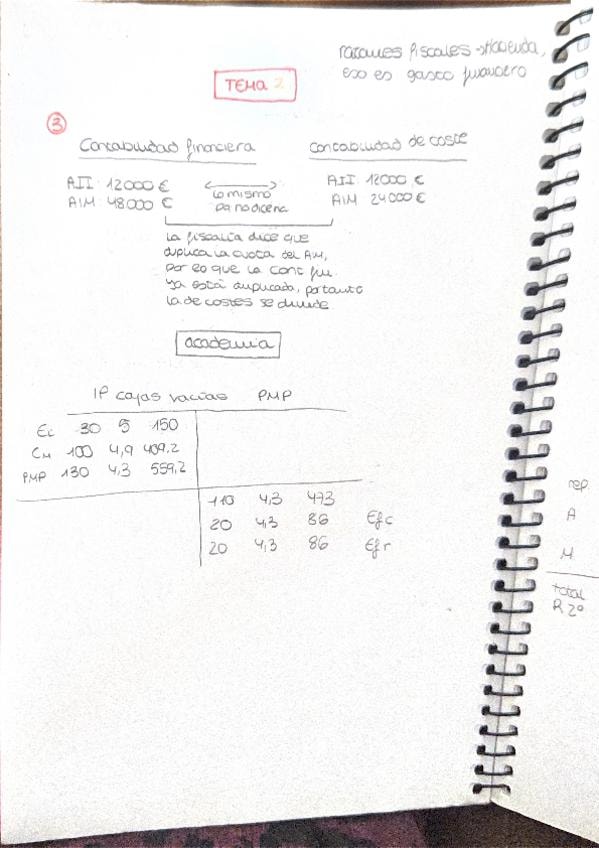 razones fiscales → Hacienda,
eso es gasto financiero
TEMA 2
3
Contabilidad financiera
Contabilidad de coste
AII: 12000 €
AIM: 48000 €
lo mismo
pa no dicena
AII: 12000 €
AIM 24000 €
la fiscalía dice que
duplica la cuota del AM,
por eo que la cont fin.
ya está duplicada, por tanto
la de costes se divide
academia
IP cajas vacías PMP
Ei 30 5 150
CM 100 4,9 409,2
PMP 130 4,3 559,2
110 4,3 473
20 4,3 86 Efc
20 4,3 86 Efr
rep.
A
M
total
R 2º